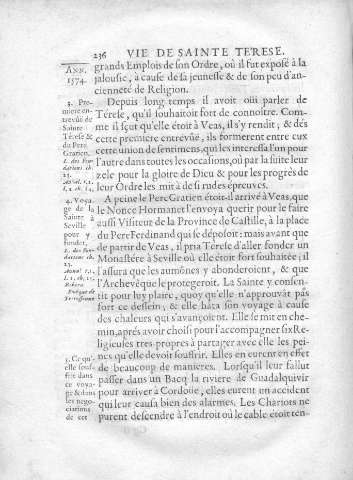 236 VIE DE SAINTE TERESE.
ANN.
1574.
grands Emplois de son Ordre, où il fut exposé à la
jalousie, à cause de sa jeunesse & de son peu d'an-
cienneté de Religion.
3. Pre-
miere en-
trevûë de
Sainte
Térese &
du Pere
Gratien.
L. des Fon-
dations ch.
23.
Depuis long temps il avoit oüi parler de
Térese, qu'il souhaitoit fort de connoître. Com-
me il sçut qu'elle étoit à Veas, il s'y rendit, & dés
cette premiere entrevûë, ils formerent entre eux
cette union de sentimens, qui les interessa l'un pour
l'autre dans toutes les occasions, où par la suite leur
zele pour la gloire de Dieu & pour les progrés de
leur Ordre les mit à de si rudes épreuves.
4. Voya-
ge de la
Sainte à
Seville
pour y
fonder.
L. des Fon-
dations ch.
23.
A peine le Pere Gratien étoit-il arrivé à Veas, que
le Nonce Hormanet l'envoya querir pour le faire
aussi Visiteur de la Province de Castille, à la place
du Pere Ferdinand qui se déposoit: mais avant que
de partir de Veas, il pria Térese d'aller fonder un
Monastére à Seville où elle étoit fort souhaitée; il
l'assura que les aumônes y abonderoient, & que
l'Archevêque le protegeroit. La Sainte y consen-
tit pour luy plaire, quoy qu'elle n'approuvât pas
fort ce dessein, & elle hâta son voyage à cause
des chaleurs qui s'avançoient. Elle se mit en che-
min, aprés avoir choisi pour l'accompagner six Re-
ligieuses tres-propres à partager avec elle les pei-
nes qu'elle devoit souffrir. Elles en eurent en effet
de beaucoup de manieres. Lorsqu'il leur fallut
passer dans un Bacq la riviere de Guadalquivir
pour arriver à Cordoüe, elles eurent un accident
qui leur causa bien des alarmes. Les Chariots ne
purent descendre à l'endroit où le cable étoit ten-
5. Ce qu'-
elle souf-
frit dans
ce voya-
ge & dans
les nego-
ciations
de cet